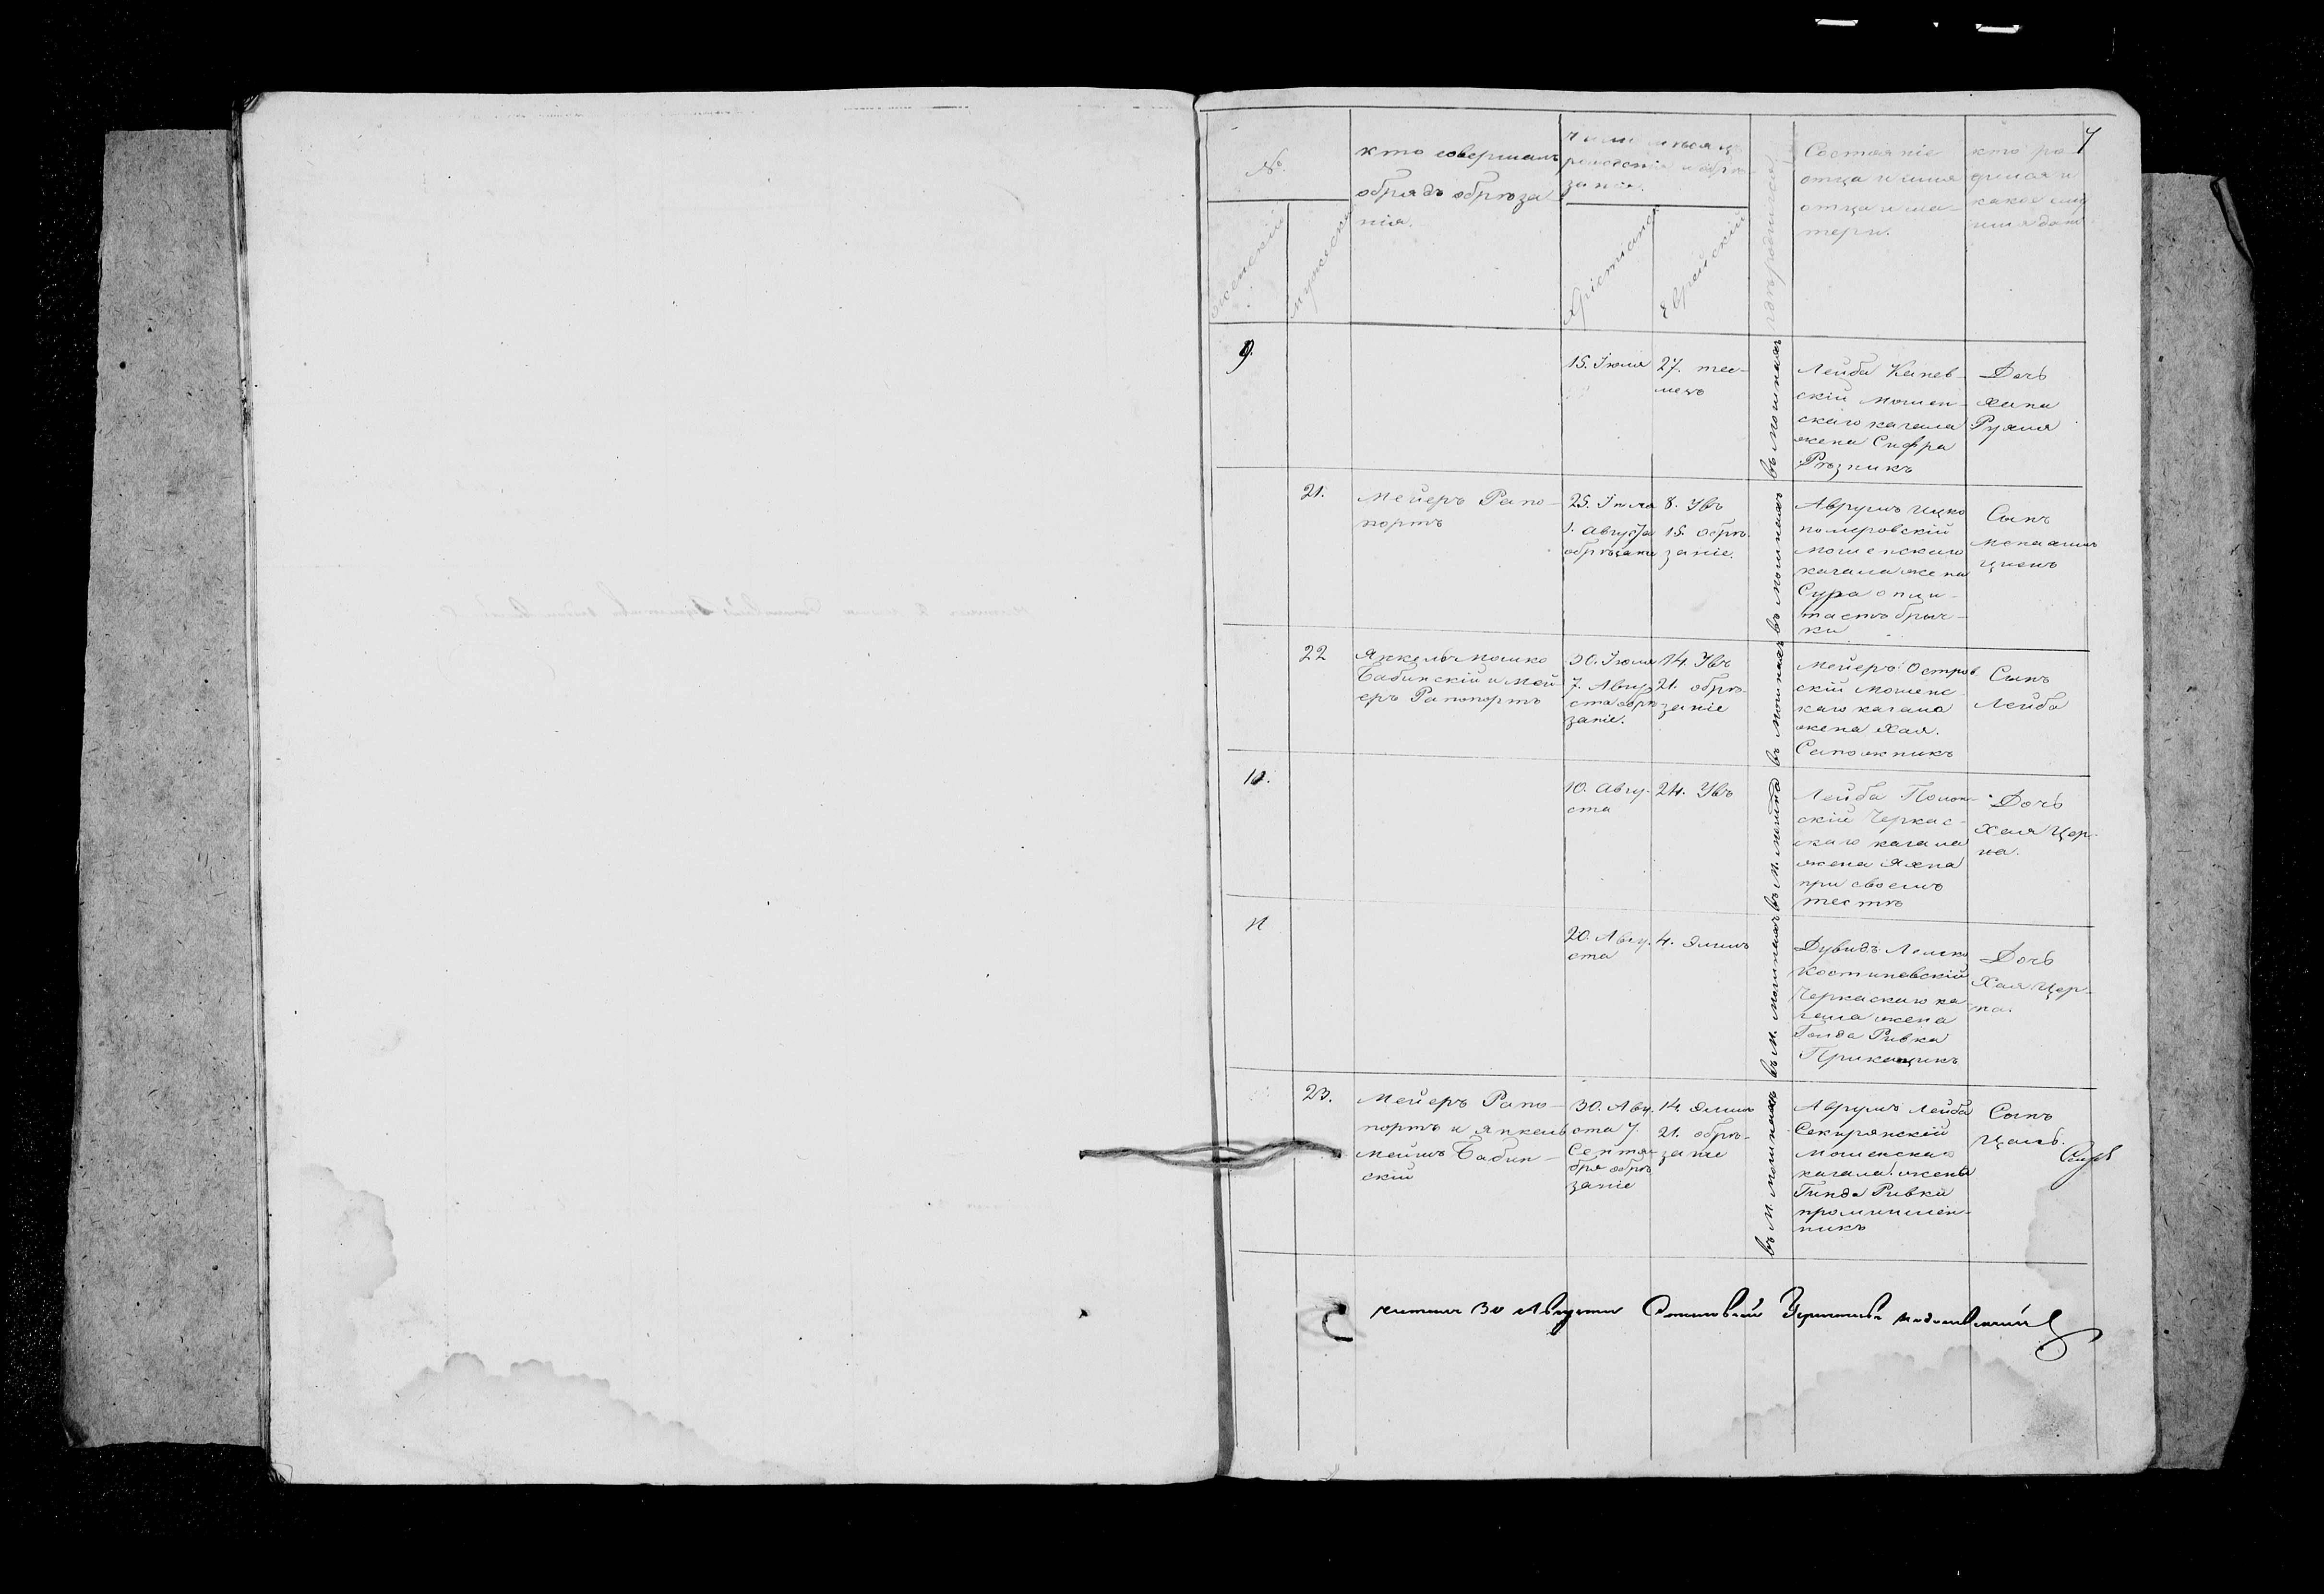 7
№
женскій
мужескій
кто совершалъ
обрядъ обрѣза
нія.
число и мѣсяцъ
рожденія и обрѣ-
занія.
Христіанс
Еврейскій
гдѣ родился
Состояніе
отца и имя
отца и ма-
тери.
кто ро-
дился и
какое ему
имя дано
9.
15. Іюля
27. тес-
мезъ
въ Мошнахъ
Лейба Канев-
скій мошен-
скаго кагала
жена Сифра
Рѣзникъ
Дочь
Хана
Рухля
21.
Мейеръ Рапо-
портъ
25. Іюля
1. Августа
обрѣзаніе
8. Увъ
15. обрѣ-
заніе.
въ Мошнахъ
Аврумъ Ицко
померовскій
мошенскаго
кагала жена
Сура
Сынъ
22
Янкель Мошко
Бабинскій и Мей-
еръ Рапопортъ
30. Іюля
7. Авгу
ста обрѣ-
заніе.
14. Увъ
21. обрѣ-
заніе
въ Мошнахъ
Мейеръ Остров
скій мошенс-
каго кагала
жена Хая.
Сапожникъ
Сынъ
Лейба
10.
10. Авгу-
ста
24. Увъ
въ М.
Лейба
скій Черкас-
скаго кагала
жена Яхна
при своемъ
тестѣ
Дочь
Хая Цер-
на.
11
20. Авгу-
ста
4. Элимъ
въ М. Мошнахъ
Дувидъ Лейзко
Костиневскій
Черкаскаго ка-
гала жена
Голда Ривка
Прикащикъ
Дочь
Хая Цер-
на.
23.
Мейеръ Рапо-
портъ и Янкель
Мейшъ Бабин-
скій
30. Авгу
ста 7.
Сентя-
бря обрѣ
заніе
14. Элимъ
21. обрѣ-
заніе
въ М. Мошнахъ
Аврумъ Лейба
Секирянскій
мошенскаго
кагала. жена
Гинда Ривка
промишлен-
никъ
Сынъ
читалъ 30 Августа Становый Приставъ